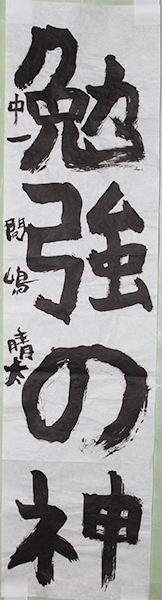 勉強の神
中一 間嶋 晴太